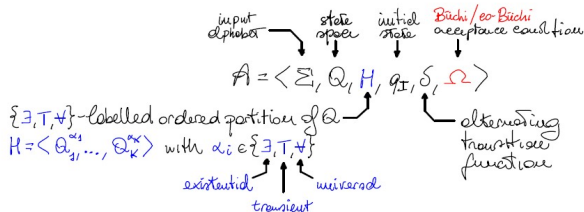 input alphabet
state space
initial state
Büchi/co-Büchi acceptance condition
A = < Σ, Q, H, q_I, δ, Ω >
{∃,T,∀}-labelled ordered partition of Q
H = <Q_1^{α_1}, ..., Q_k^{α_k}> with α_i ∈ {∃,T,∀}
alternating transition function
existential
universal
transient